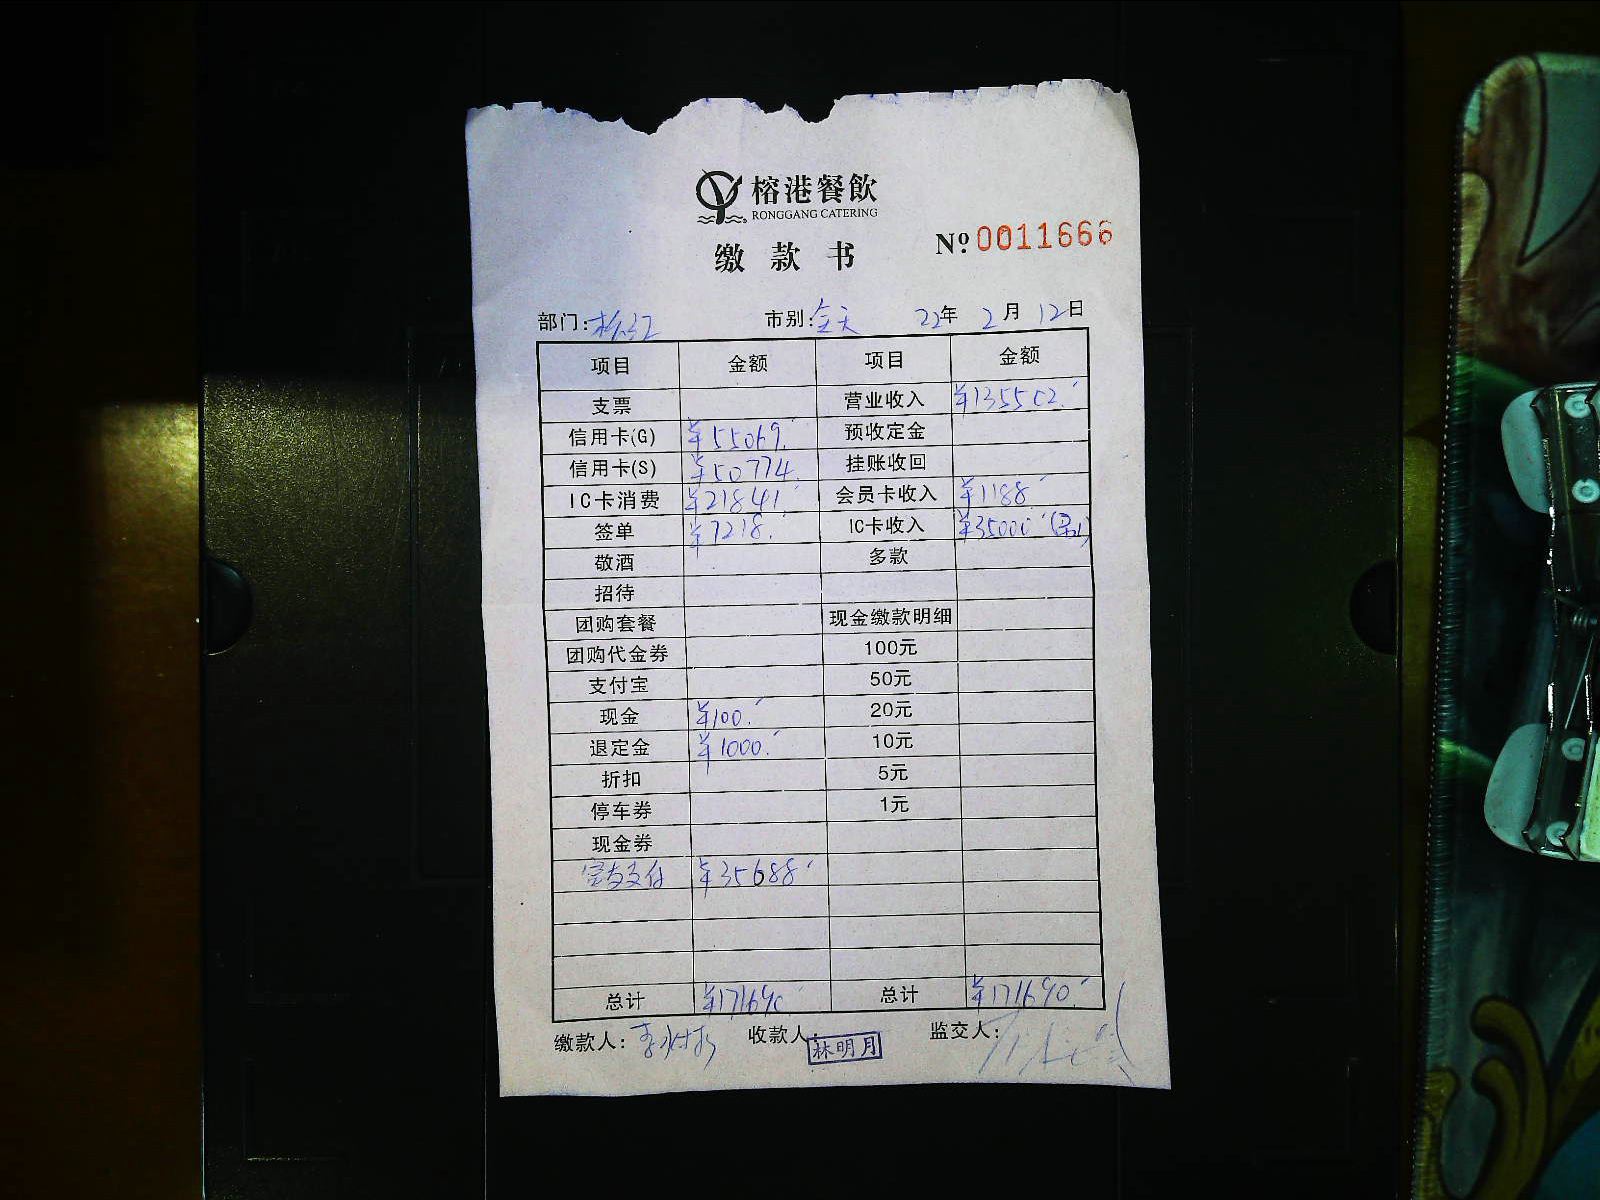 榕港餐飲
RONGGANG CATERING
缴款书
№ 0011666
部门: 市别:全天 22年 2月 12日
项目 金额 项目 金额
支票 营业收入 ¥135502.
信用卡(G) ¥55069. 预收定金
信用卡(S) ¥50774. 挂账收回
IC卡消费 ¥21841 会员卡收入 ¥1188
签单 ¥7218. IC卡收入 ¥35000
敬酒 多款
招待
团购套餐 现金缴款明细
团购代金券 100元
支付宝 50元
现金 ¥100. 20元
退定金 ¥1000. 10元
折扣 5元
停车券 1元
现金券
支付 ¥35688
总计 ¥171690. 总计 ¥171690.
缴款人: 收款人: 林明月 监交人: